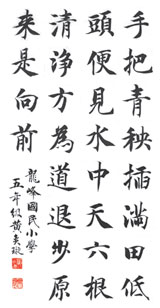 手把青秧插滿田低
頭便見水中天六根
清淨方為道退步原
來是向前
龍峰國民小學
五年級黃